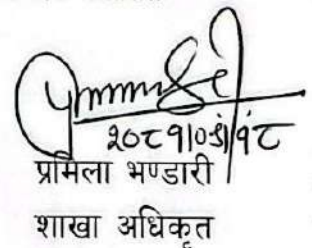 २०८१।०३।१८
प्रमिला भण्डारी
शाखा अधिकृत